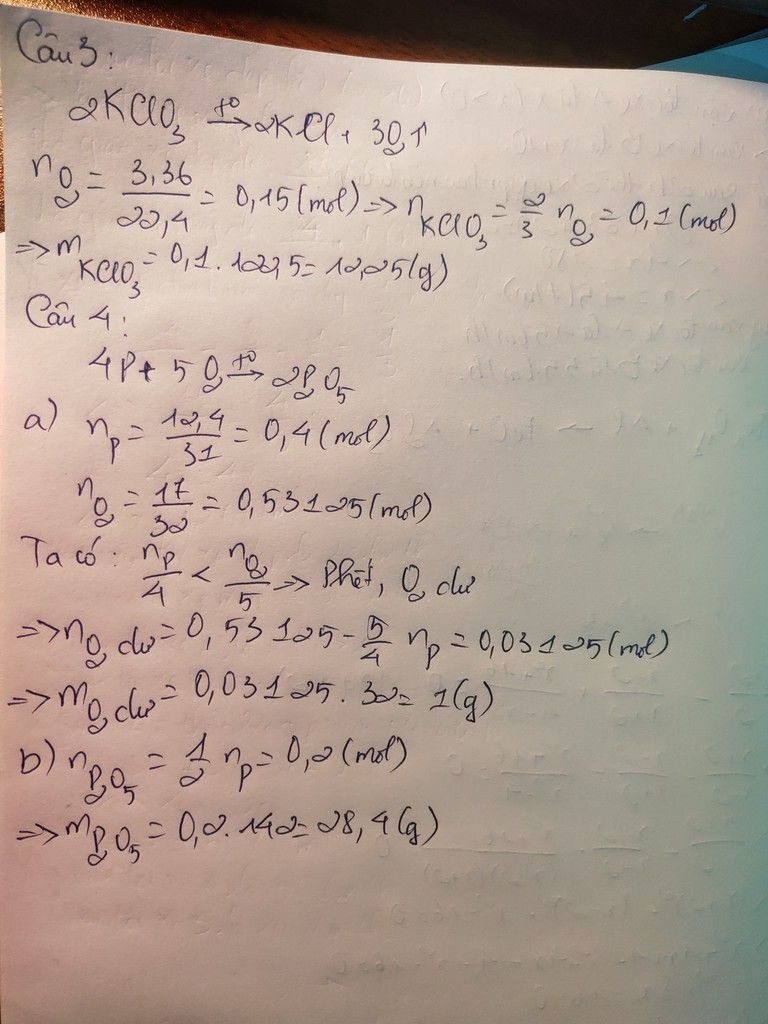 Câu 3:
2KClO₃ →(t°) 2KCl + 3O₂↑
n O₂ = 3,36/22,4 = 0,15 (mol) => n KClO₃ = 2/3 n O₂ = 0,1 (mol)
=> m KClO₃ = 0,1 . 122,5 = 12,25 (g)
Câu 4:
4P + 5O₂ →(t°) 2P₂O₅
a) n P = 12,4/31 = 0,4 (mol)
n O₂ = 17/32 = 0,53125 (mol)
Ta có: n P/4 < n O₂/5 => P hết, O₂ dư
=> n O₂ dư = 0,53125 - 5/4 n P = 0,03125 (mol)
=> m O₂ dư = 0,03125 . 32 = 1 (g)
b) n P₂O₅ = 1/2 n P = 0,2 (mol)
=> m P₂O₅ = 0,2 . 142 = 28,4 (g)